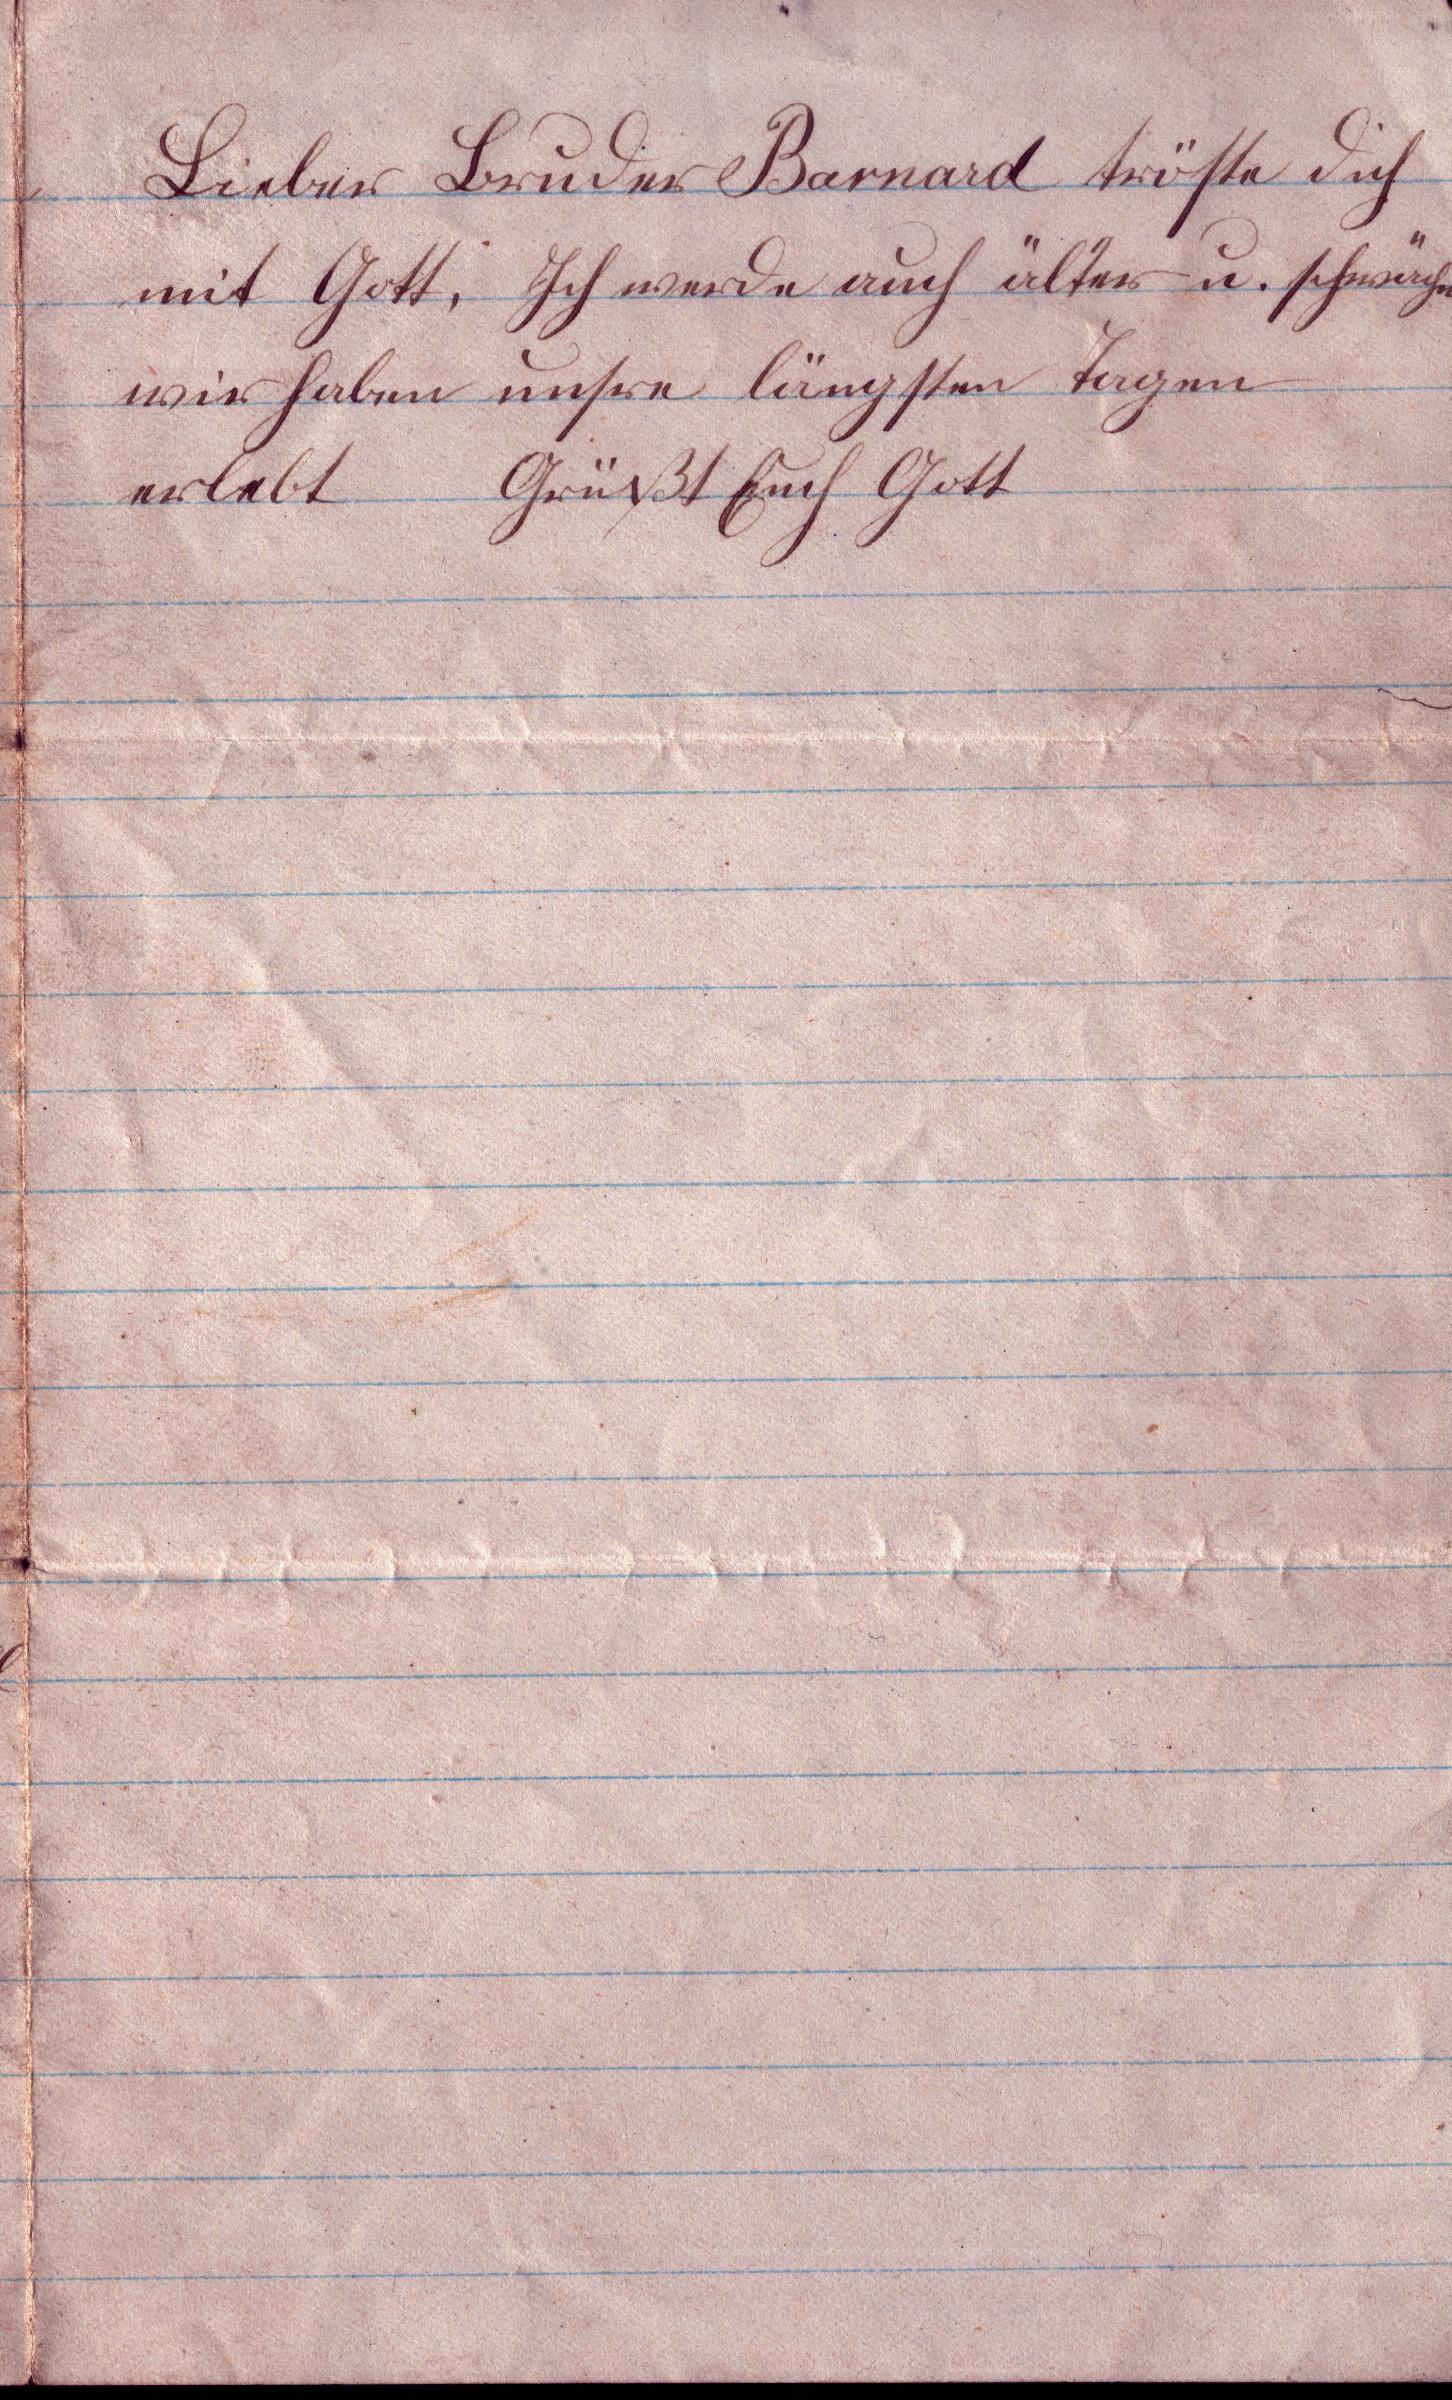 Lieber Bruder Barnard tröste dich
mit Gott, Ich werde auch älter u. schwäche
wir haben unsre längsten Tagen
erlebt Grüßt Euch Gott